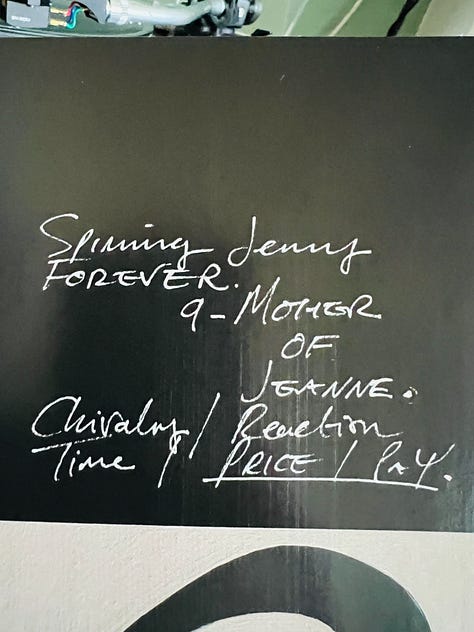 Spinning Jenny
FOREVER.
9 - MOTHER
OF
JEANNE.
Chivalry / Reaction
Time / PRICE / PAY.